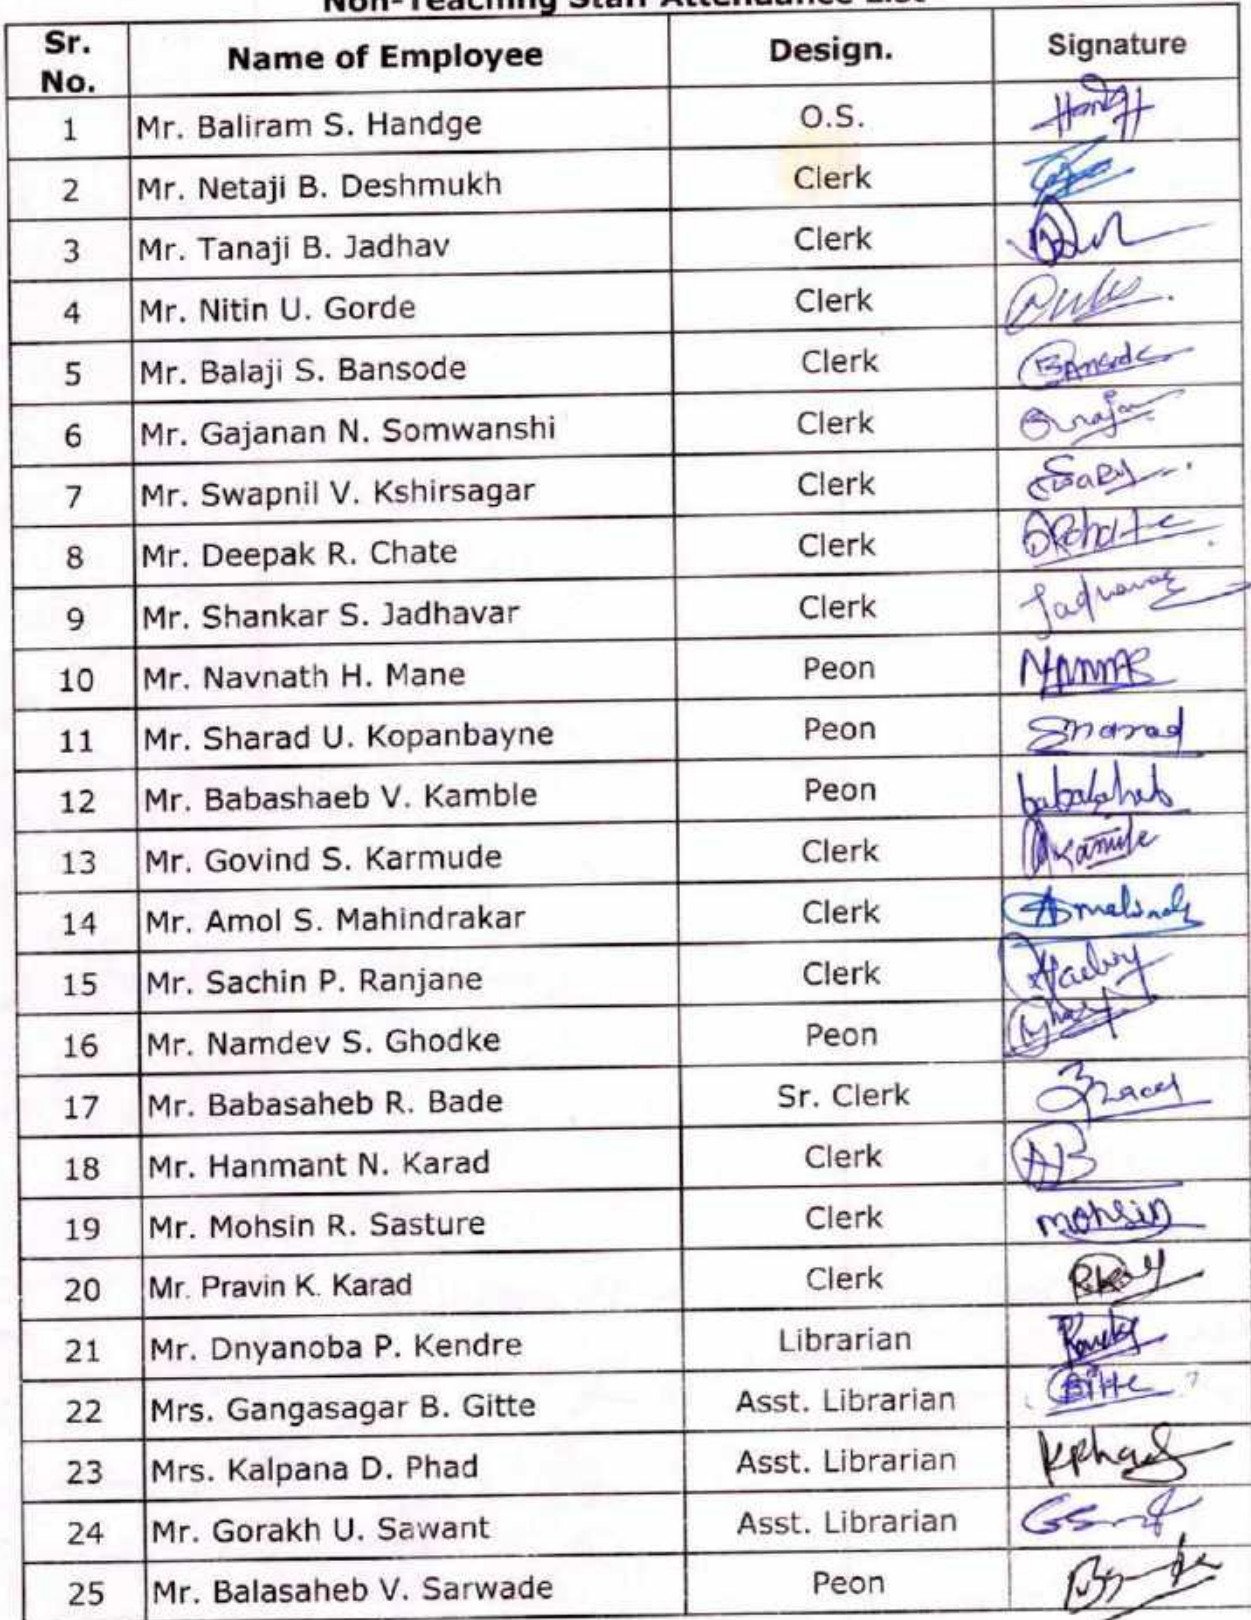 Non-Teaching Staff Attendance List
Sr. No. Name of Employee Design. Signature
1 Mr. Baliram S. Handge O.S.
2 Mr. Netaji B. Deshmukh Clerk
3 Mr. Tanaji B. Jadhav Clerk
4 Mr. Nitin U. Gorde Clerk
5 Mr. Balaji S. Bansode Clerk Bansode
6 Mr. Gajanan N. Somwanshi Clerk
7 Mr. Swapnil V. Kshirsagar Clerk
8 Mr. Deepak R. Chate Clerk DRChate
9 Mr. Shankar S. Jadhavar Clerk
10 Mr. Navnath H. Mane Peon
11 Mr. Sharad U. Kopanbayne Peon Sharad
12 Mr. Babashaeb V. Kamble Peon babasaheb
13 Mr. Govind S. Karmude Clerk
14 Mr. Amol S. Mahindrakar Clerk
15 Mr. Sachin P. Ranjane Clerk
16 Mr. Namdev S. Ghodke Peon
17 Mr. Babasaheb R. Bade Sr. Clerk
18 Mr. Hanmant N. Karad Clerk
19 Mr. Mohsin R. Sasture Clerk mohsin
20 Mr. Pravin K. Karad Clerk
21 Mr. Dnyanoba P. Kendre Librarian
22 Mrs. Gangasagar B. Gitte Asst. Librarian Gitte
23 Mrs. Kalpana D. Phad Asst. Librarian kphad
24 Mr. Gorakh U. Sawant Asst. Librarian
25 Mr. Balasaheb V. Sarwade Peon